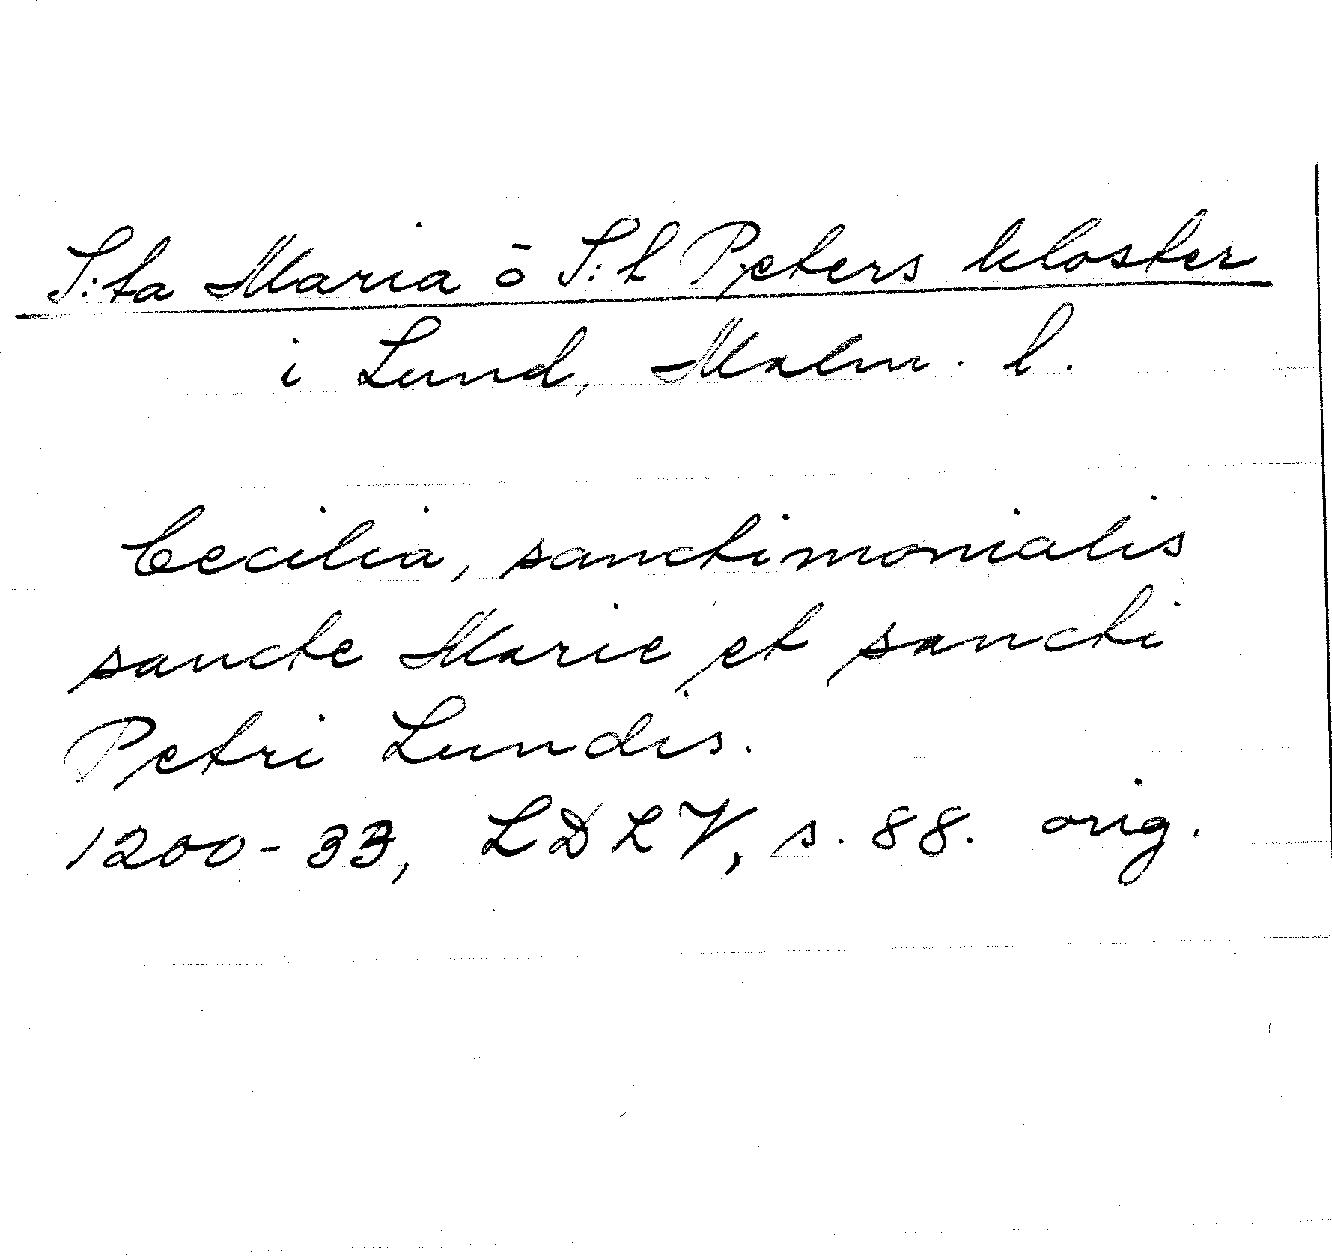 S:ta Maria o S:t Peters kloster
i Lund, Malm. l.
Cecilia, sanctimonialis
sancte Marie et sancti
Petri Lundis.
1200-33, LDLV, s. 88. orig.